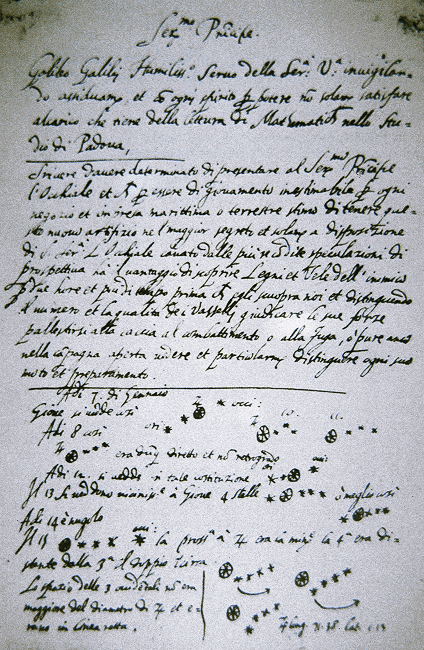 Ser.mo Principe.
Galileo Galilej Humiliss.o Servo della Ser.a V.a invigilan-
do assiduam.te, et co ogni spirito p potere no solam.te satisfare
alcarico che tiene della lettura di Mathematich nello Stu-
dio di Padova,
Scrivere davere determinato di presentare al Ser.mo Principe
l'Occhiale et p essere di Giovamento inestimabile p ogni
negozio et impresa marittima o terrestre stimo di tenere que-
sto nuovo artifizio nel maggior segreto et solam.te a disposizione
di S. Ser.a L'Occhiale cavato dalle più recondite speculazioni di
prospettiva ha il vantaggio di scoprire Legni et Vele dell'inimico
p due hore et più di tempo prima ch egli scuopra noi et distinguendo
il numero et la qualità de i Vasselli giudicare le sue forze
pallestirsi alla caccia al combattimento o alla fuga, o pure anco
nella capagna aperta vedere et particolarm.te distinguere ogni suo
moto et preparamento.
Adi 7. di Gennaio
Giove si vedde così
Adi 8 così
era dūq diretto et no retrogrado
Adi 12. si vedde in tale costituzione
Il 13 si veddono vicinissi.e à Giove 4 stelle ò meglio così
Adi 14 è nugolo
Il 15 la pross.a à 4 era la min.e la 4.a era di-
stante dalla 3.a il doppio circa
Lo spazio delle 3 occidentali no era
maggiore del diametro di 4 et e-
rano in linea retta.